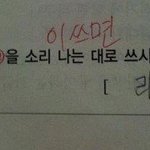 이쓰면
을 소리 나는 대로 쓰시
[ 리